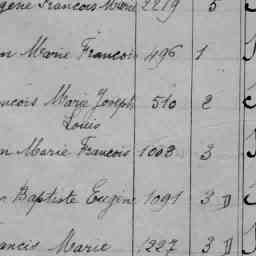 gène François Marie 2219 5
n Marie François 496 1
nçois Marie Joseph 510 2
Louis
n Marie François 1003 3
n Baptiste Eugène 1091 3 D
ancis Marie 1227 3 D